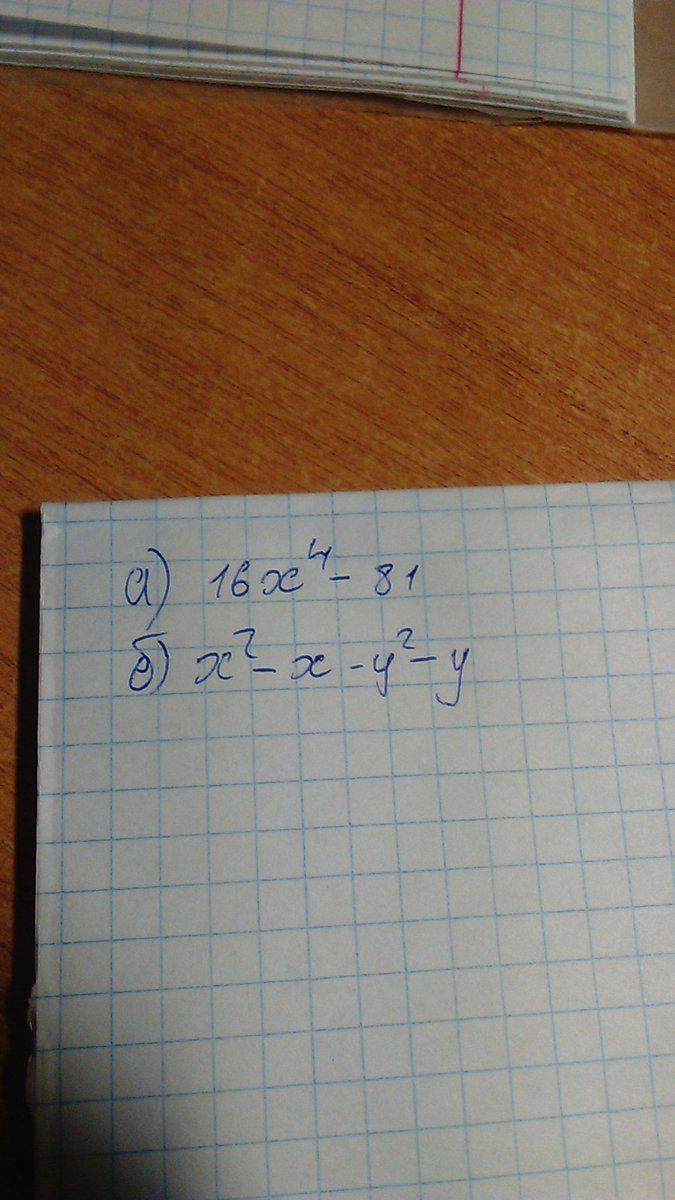 а) 16x⁴ - 81
б) x² - x - y² - y